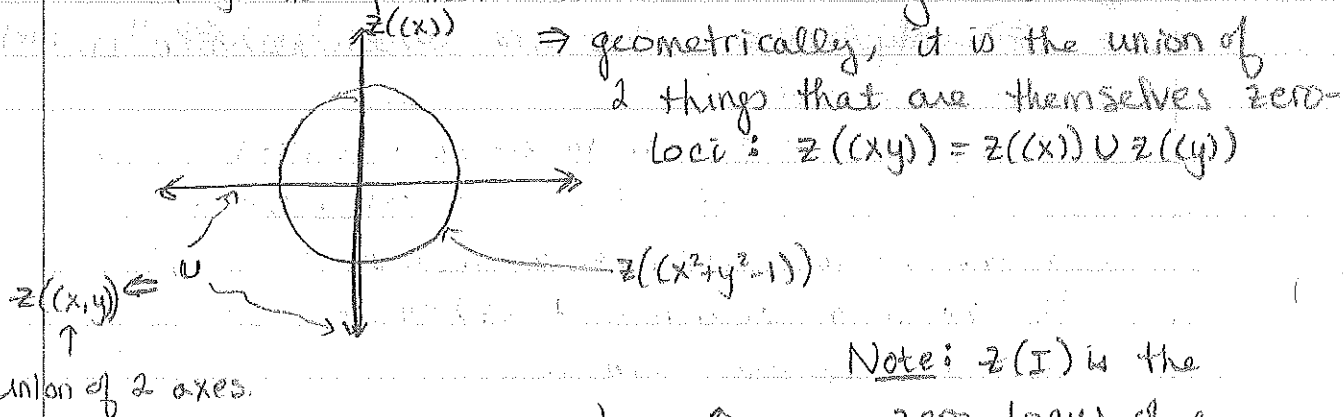 z((x))
⇒ geometrically, it is the union of
2 things that are themselves zero-
loci: z((xy)) = z((x)) ∪ z((y))
∪
z((x²+y²-1))
z((x,y)) ⇐
↑
union of 2 axes.
Note: z(I) is the
zero locus of a